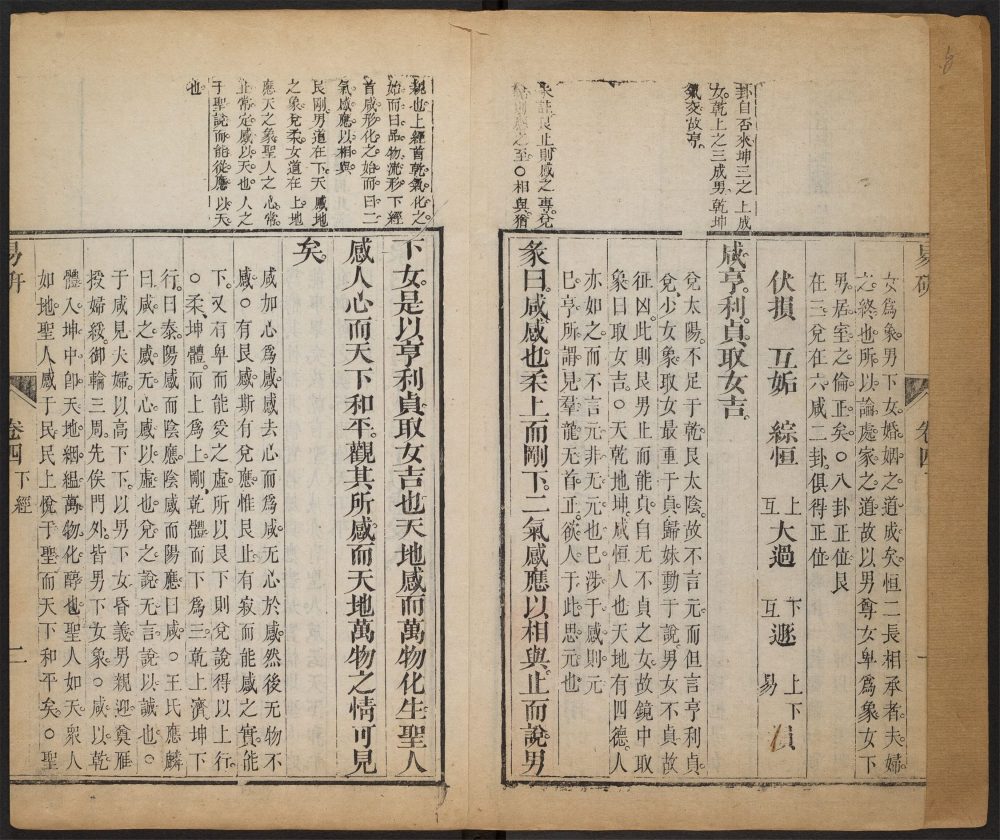 卦自否來坤三之上成
女乾上之三成男乾坤
氣交故亨
彖註艮止則感之專兌
感之至○相與猶
女爲象男下女婚姻之道成矣恒二長相承者夫婦
之終也所以論處家之道故以男尊女卑爲象女下
男居室之倫正矣○八卦正位艮
在三兌在六咸二卦俱得正位
伏損 互姤 綜恒 上互大過 下互遯 上下易損
咸亨利貞取女吉
兌太陽不足于乾艮太陰故不言元而但言亨利貞
兌少女象取女最重于貞歸妹動于說男女不貞故
征凶此則艮男止而能貞自无不貞之女故鏡中取
象曰取女吉○天乾地坤咸恒人也天地有四德人
亦如之而不言元非无元也巳涉于感則元
巳亨所謂見羣龍无首正欲人于此思元也
彖曰咸感也柔上而剛下二氣感應以相與止而說男
親也上經首乾氣化之
始而曰品物流形下經
首咸形化之始而曰二
氣感應以相與
艮剛男道在下天感地
之象兌柔女道在上地
應天之象聖人之心常
止常定感以天也人之
于聖說而能從應以天
也
下女是以亨利貞取女吉也天地感而萬物化生聖人
感人心而天下和平觀其所感而天地萬物之情可見
矣
咸加心爲感感去心而爲咸无心於感然後无物不
感○有艮感斯有兌應惟艮止有寂而能感之實能
下又有卑而能受之虛所以艮下則兌說得以上行
○柔坤體而上上爲上剛乾體而下下爲三乾上濟坤下
行曰泰陽感而陰應陰感而陽應曰咸○王氏應麟
曰咸之感无心感以虛也兌之說无言說以誠也○
于咸見夫婦以高下下以男下女昏義男親迎奠雁
授婦綏御輪三周先俟門外皆男下女象○咸以乾
體入坤中卽天地絪縕萬物化醇也聖人如天衆人
如地聖人感于民民上悅于聖而天下和平矣○聖
卷四 下經
二